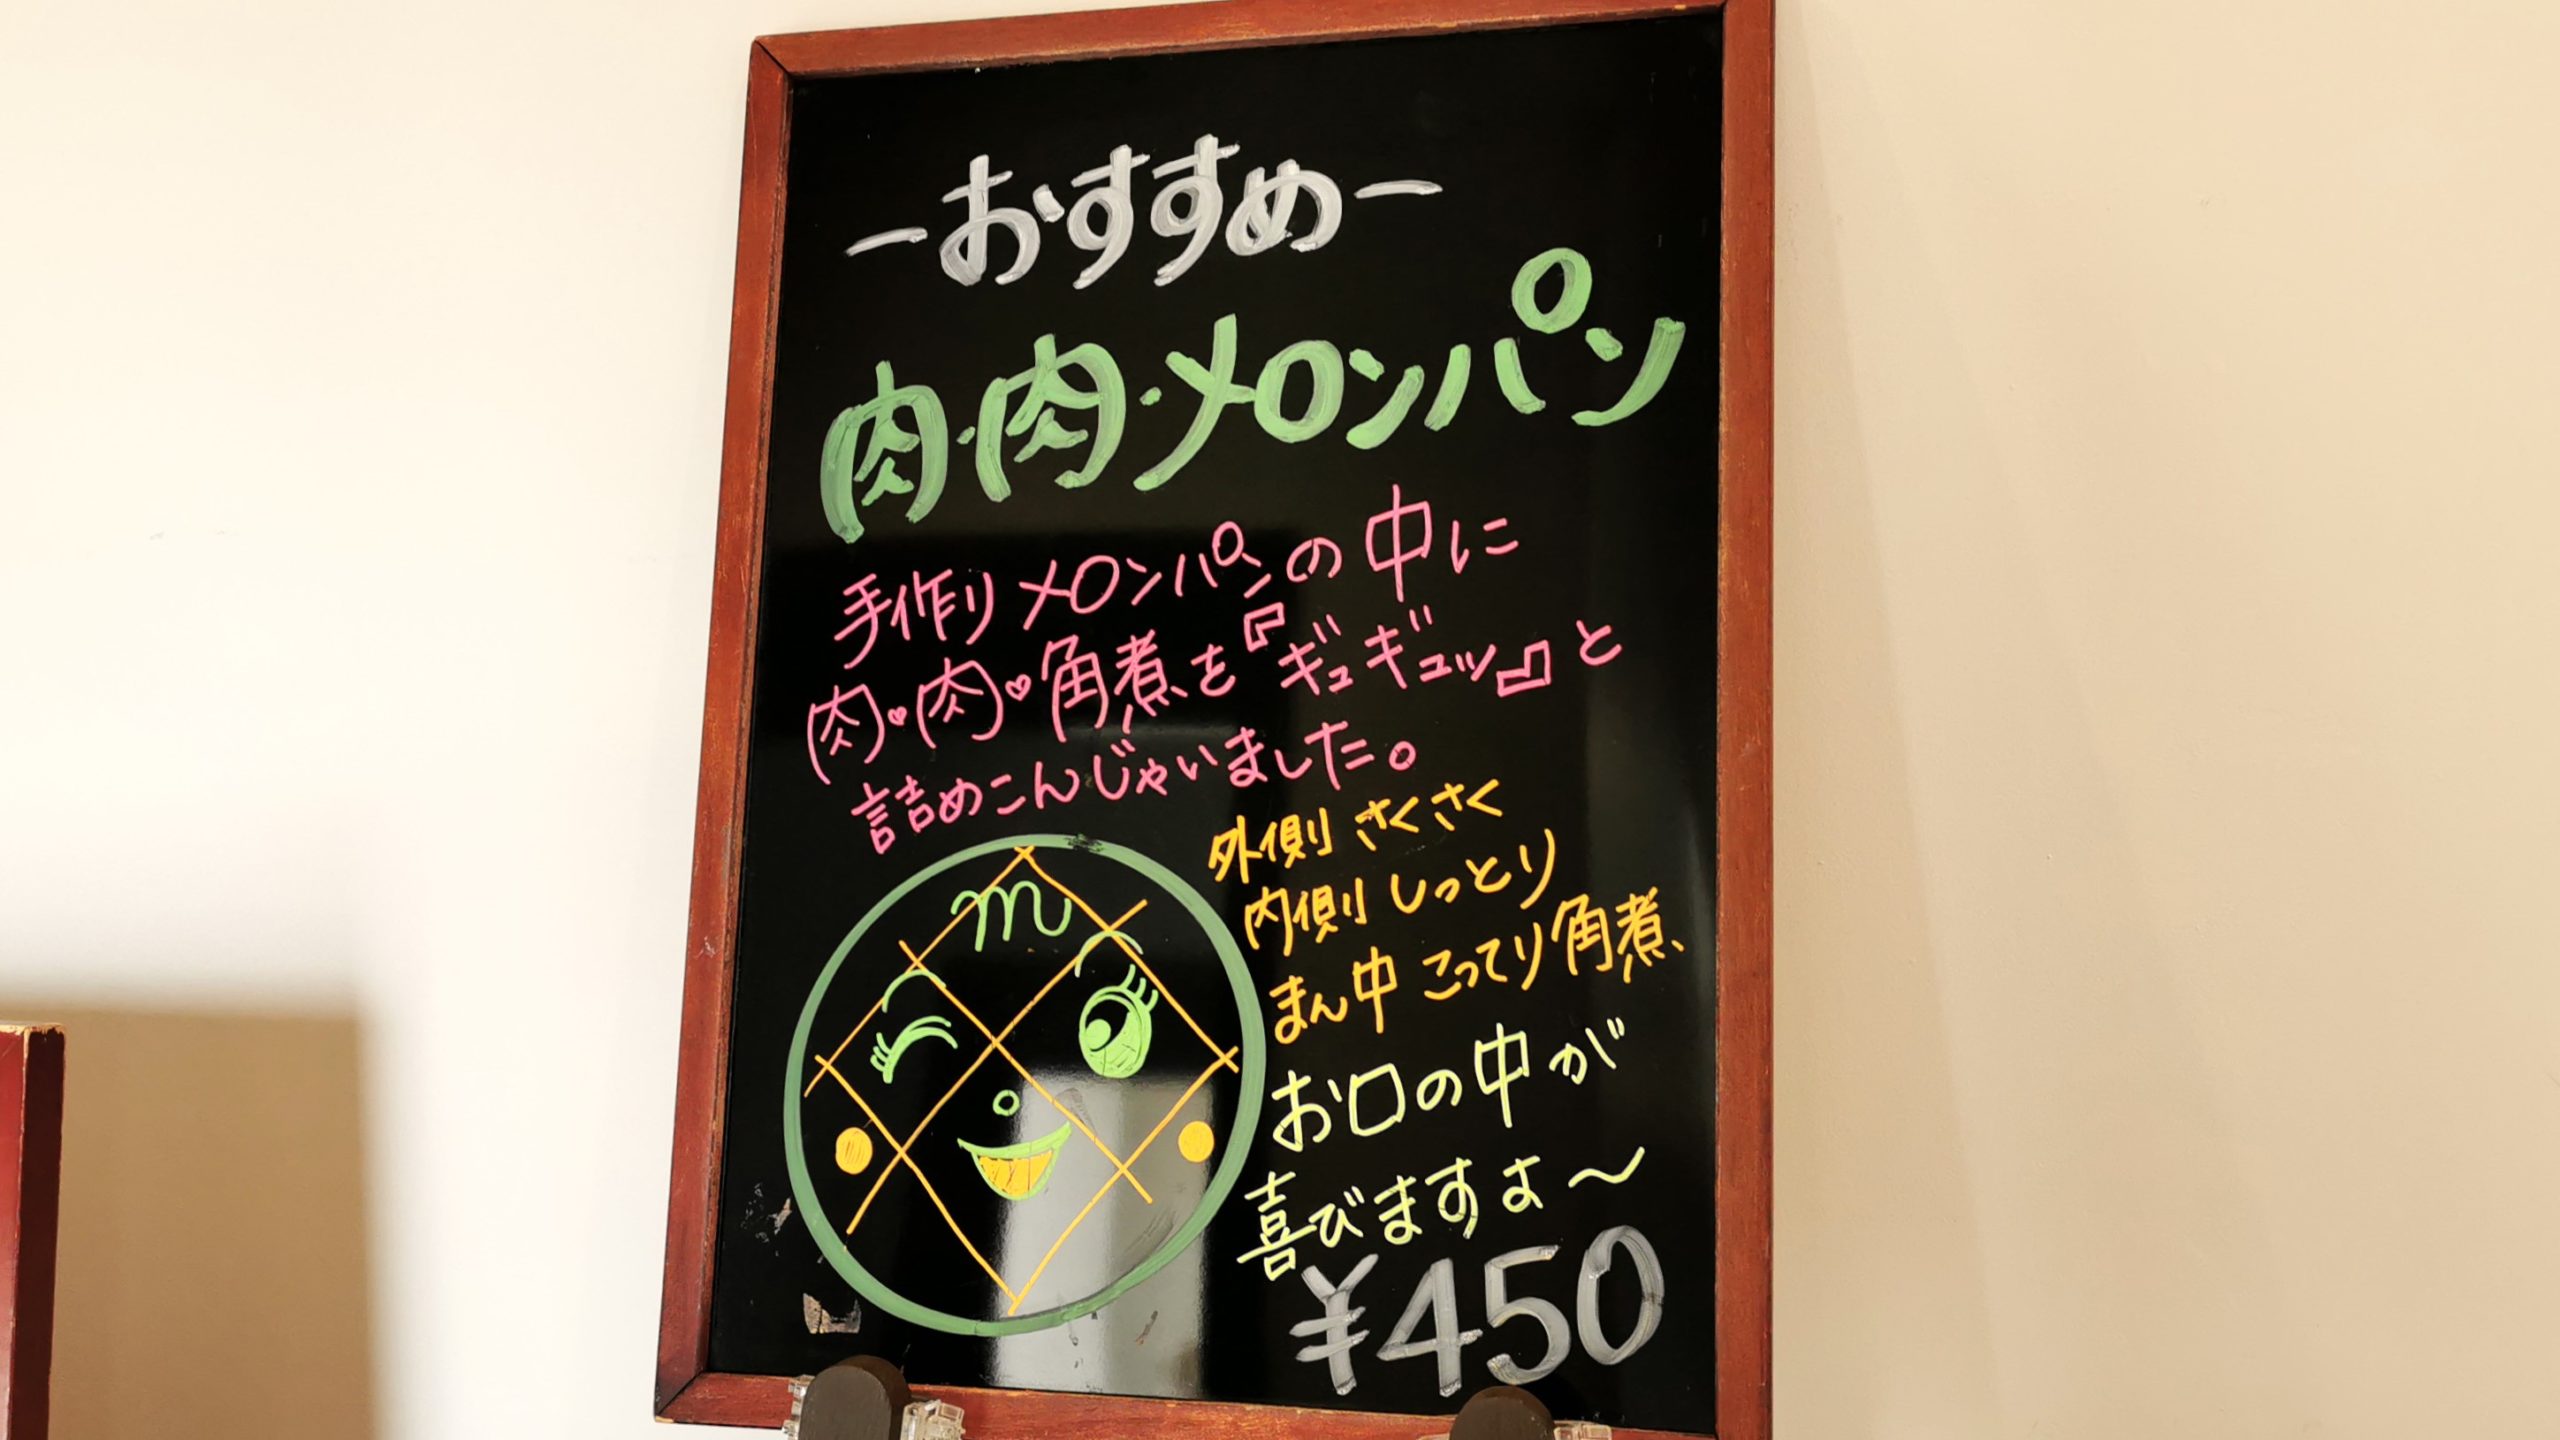 ーおすすめー
肉・肉・メロンパン
手作りメロンパンの中に
肉♥肉♥角煮を『ギュギュッ』と
詰めこんじゃいました。
外側 さくさく
内側 しっとり
まん中 こってり角煮
お口の中が
喜びますよ～
¥450
m